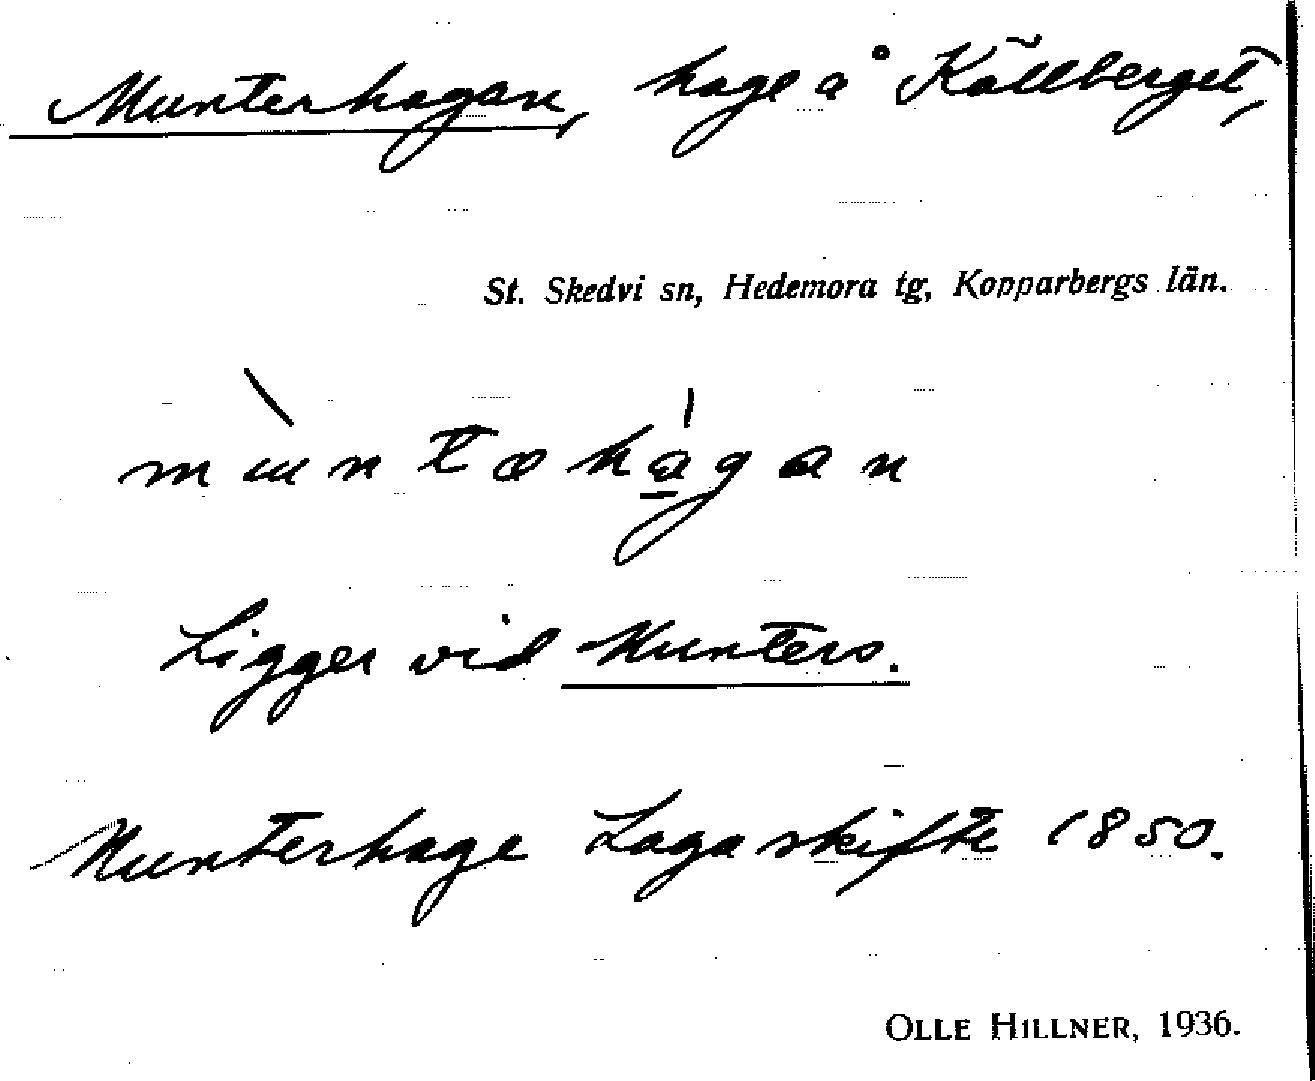 Munterhagan, hage å Källberget,
St. Skedvi sn, Hedemora tg, Kopparbergs län.
Ligger vid Munters.
Munterhage Laga skifte 1850.
OLLE HILLNER, 1936.